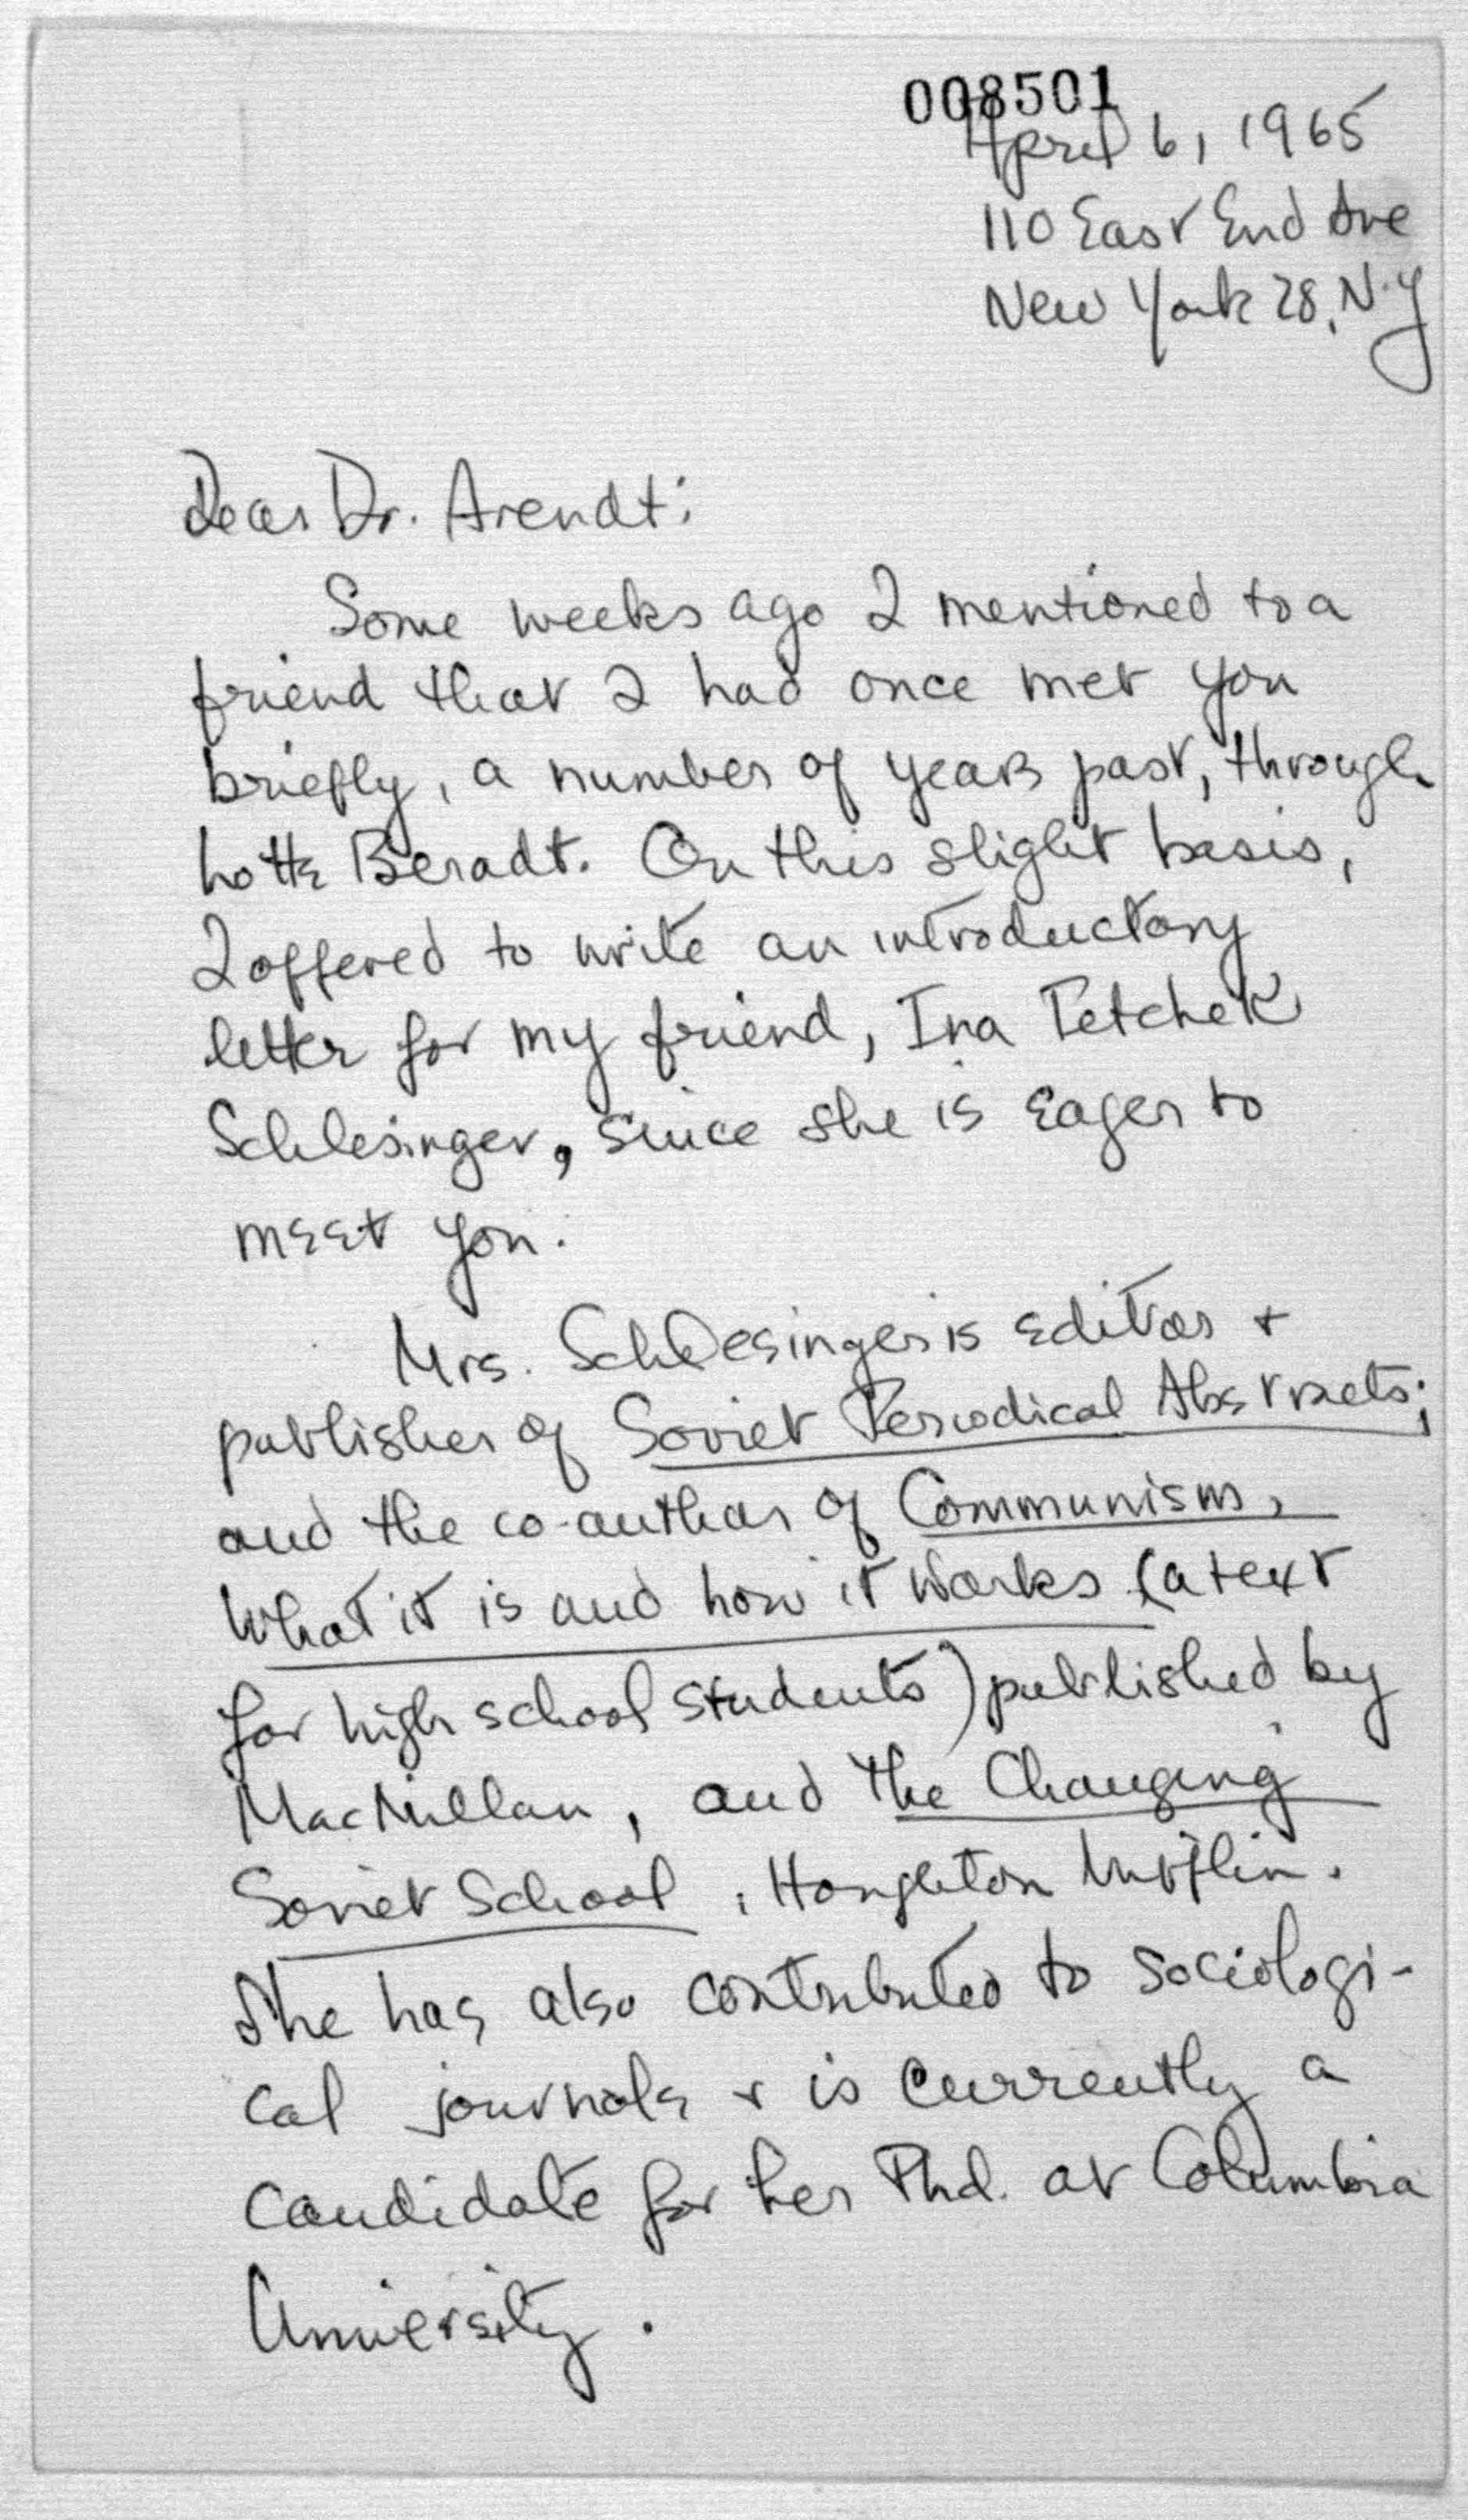 008501
April 6, 1965
110 East End Ave
New York 28, N.Y
Dear Dr. Arendt:
Some weeks ago I mentioned to a
friend that I had once met you
briefly, a number of years past, through
Lotte Beradt. On this slight basis,
I offered to write an introductory
letter for my friend, Ina Tetchek
Schlesinger, since she is eager to
meet you.
Mrs. Schlesinger is editor +
publisher of Soviet Periodical Abstracts;
and the co-author of Communism,
What it is and how it works (a text
for high school students) published by
MacMillan, and the Changing
Soviet School, Houghton Mifflin.
She has also contributed to sociologi-
cal journals + is currently a
candidate for her Phd. at Columbia
University.